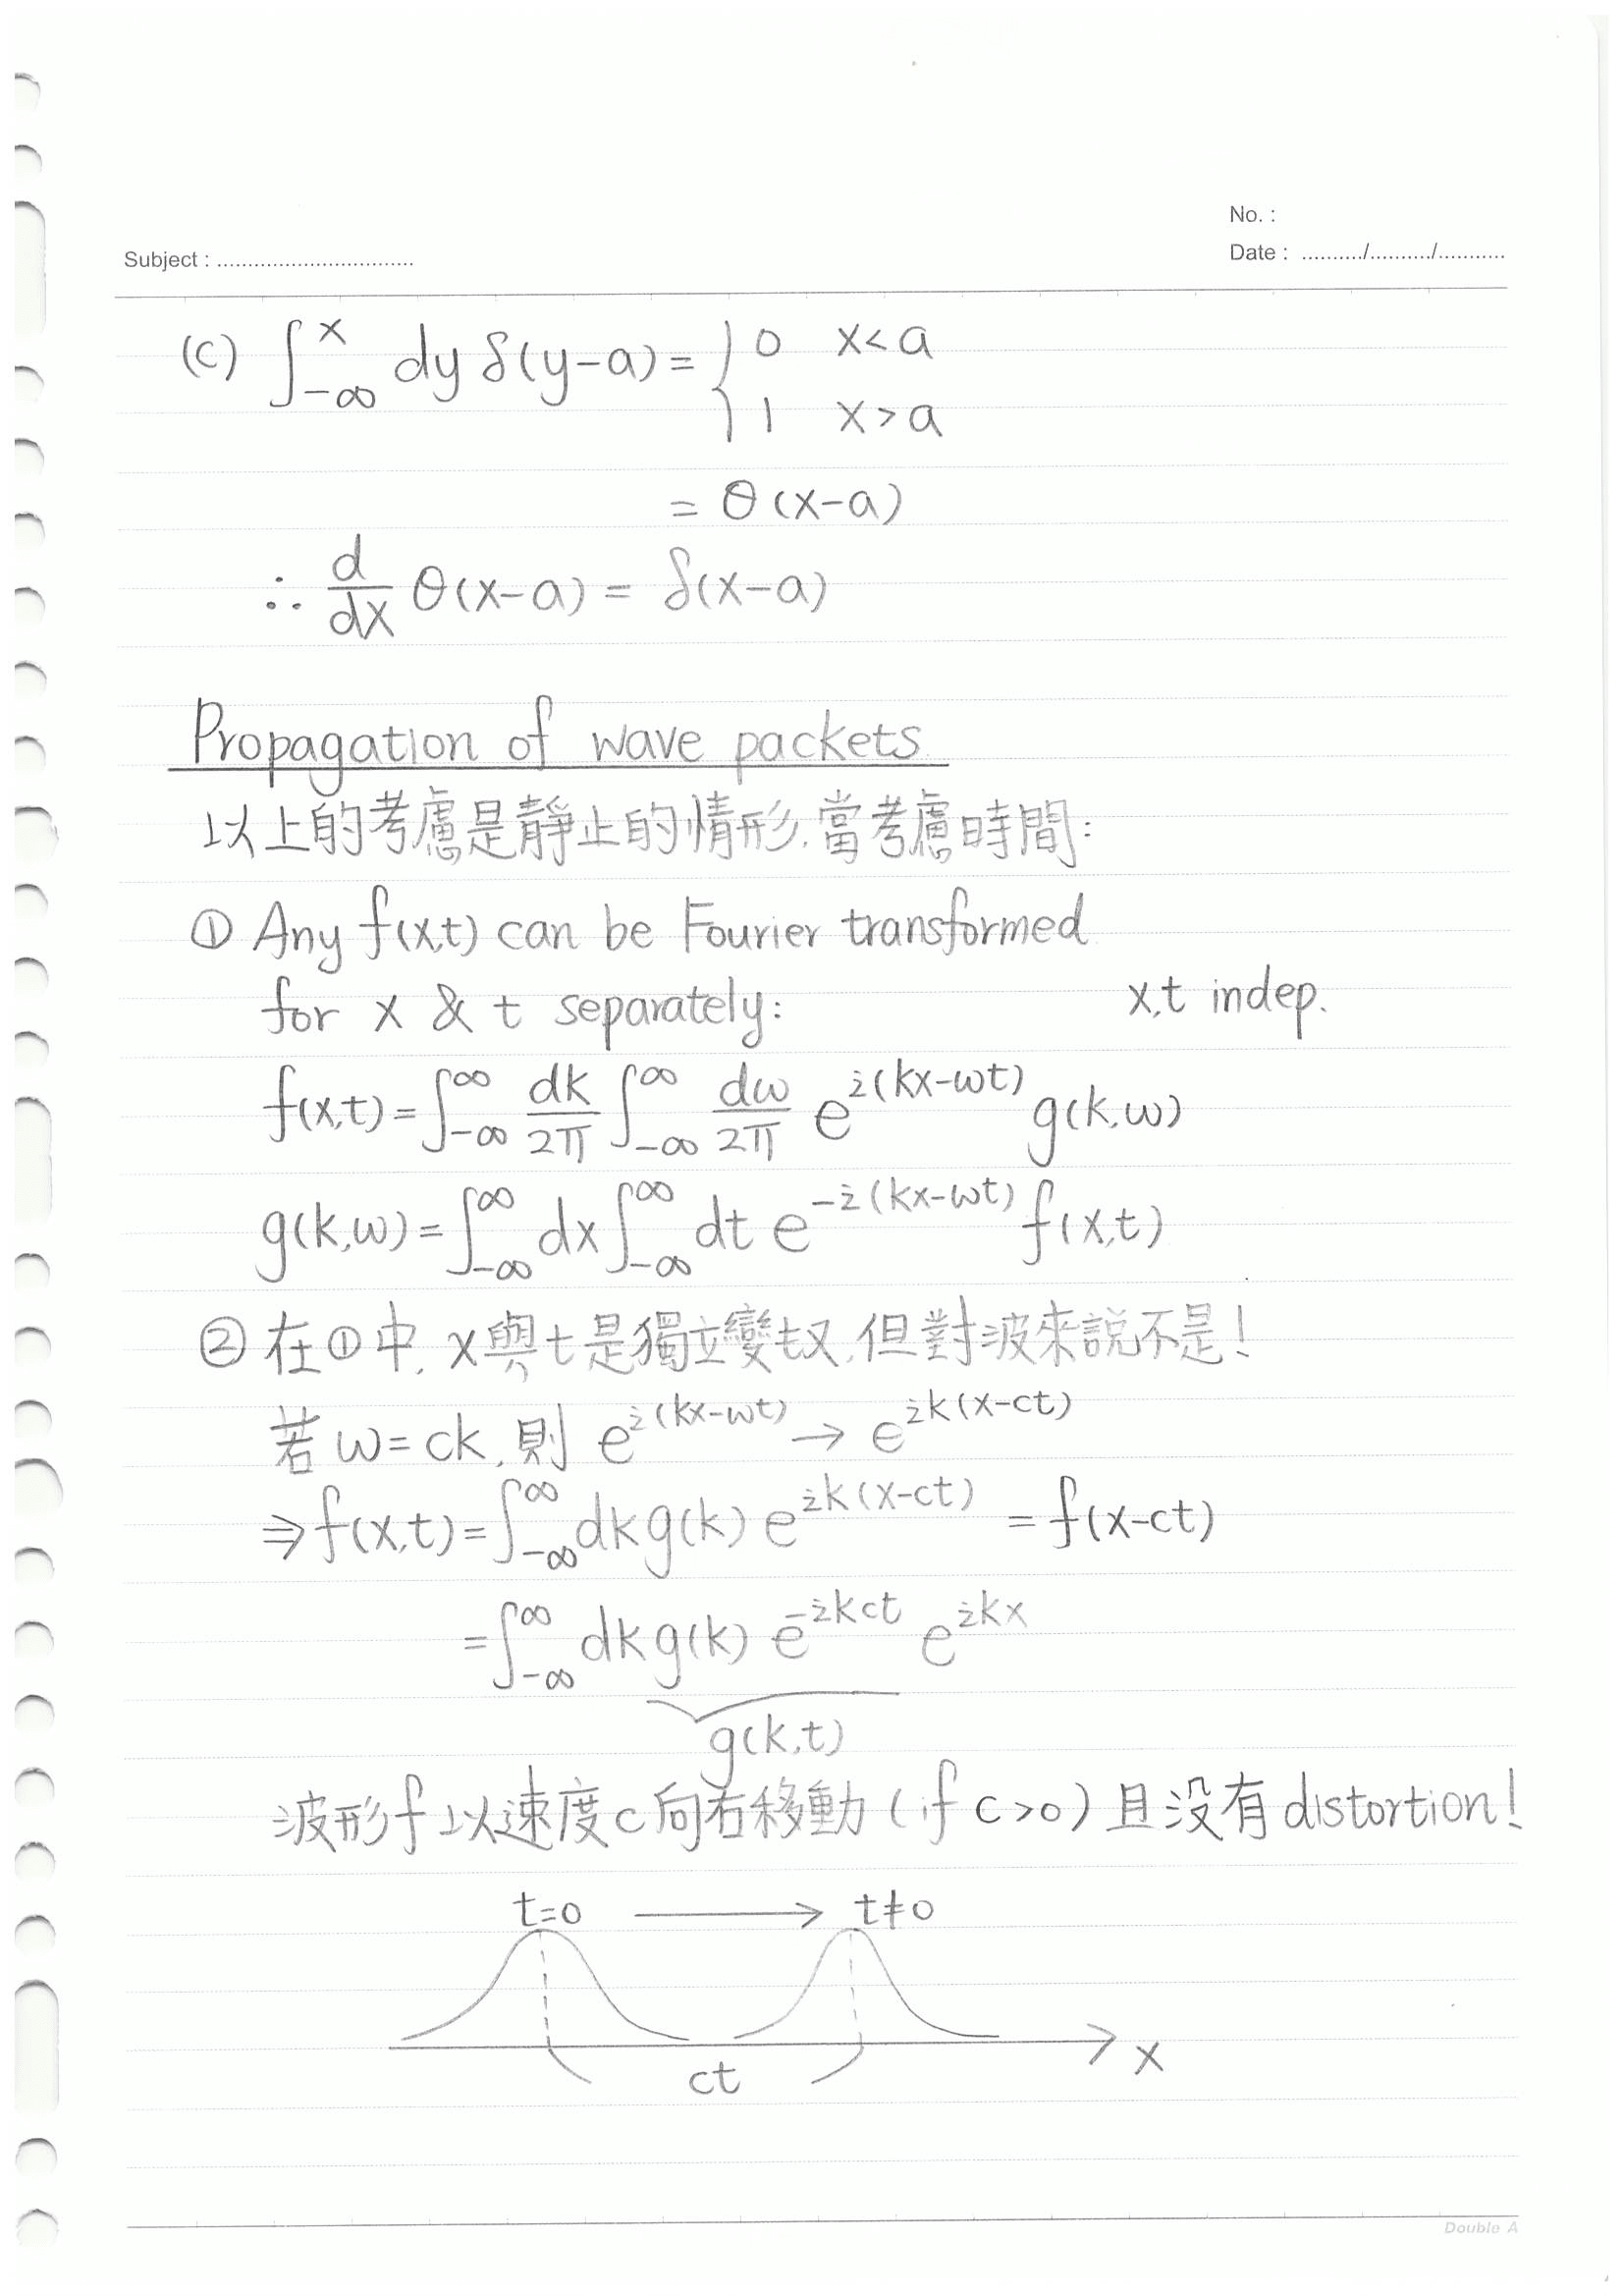 No. :
Subject : ................................ Date : ........../........../...........
(c) ∫_{-∞}^{x} dy δ(y-a) = { 0 x<a
1 x>a
= θ(x-a)
∴ d/dx θ(x-a) = δ(x-a)
Propagation of wave packets
以上的考慮是靜止的情形.當考慮時間:
① Any f(x,t) can be Fourier transformed
for x & t separately: x,t indep.
f(x,t) = ∫_{-∞}^{∞} dk/2π ∫_{-∞}^{∞} dω/2π e^{i(kx-ωt)} g(k,ω)
g(k,ω) = ∫_{-∞}^{∞} dx ∫_{-∞}^{∞} dt e^{-i(kx-ωt)} f(x,t)
② 在①中, x與t是獨立變数,但對波來說不是!
若 ω=ck, 則 e^{i(kx-ωt)} → e^{ik(x-ct)}
⇒ f(x,t) = ∫_{-∞}^{∞} dk g(k) e^{ik(x-ct)} = f(x-ct)
= ∫_{-∞}^{∞} dk g(k) e^{-ikct} e^{ikx}
g(k,t)
波形f以速度c向右移動 (if c>0) 且沒有distortion!
t=0 → t≠0
x
ct
Double A